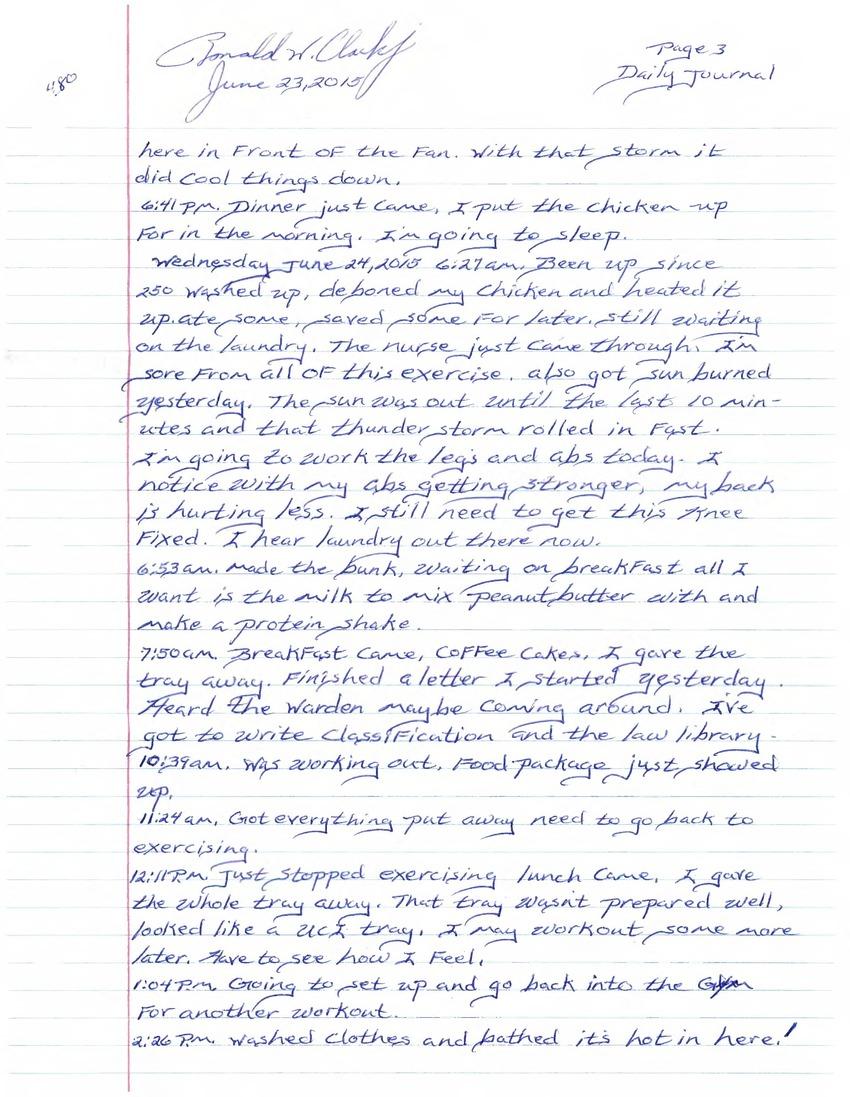 Ronald W. Clark Jr
June 23, 2015
Page 3
Daily Journal
480
here in Front OF the Fan. With that storm it
did cool things down.
6:41 P.M. Dinner just came, I put the chicken up
For in the morning. I'm going to sleep.
Wednesday June 24, 2015 6:27am. Been up since
250 washed up, deboned my chicken and heated it
up. ate some, saved some For later. still waiting
on the laundry. The nurse just came through. I'm
sore From all OF this exercise. also got sun burned
yesterday. The sun was out until the last 10 min-
utes and that thunder storm rolled in Fast.
I'm going to work the legs and abs today. I
notice with my abs getting stronger, my back
is hurting less. I still need to get this Knee
Fixed. I hear laundry out there now.
6:53 am. Made the bunk, waiting on breakFast all I
want is the milk to mix peanut butter with and
make a protein shake.
7:50am. BreakFast came, CoFFee Cakes, I gave the
tray away. Finished a letter I started yesterday.
Heard the Warden maybe coming around. I've
got to write ClassiFication and the law library-
10:39am. Was working out, Food package just showed
up.
11:24 am, Got everything put away need to go back to
exercising.
12:11 P.M. Just stopped exercising lunch came, I gave
the whole tray away. That tray wasn't prepared well,
looked like a UCI tray. I may workout some more
later. Have to see how I Feel.
1:04 P.M. Going to set up and go back into the Gym
For another workout.
2:26 P.M. washed clothes and bathed it's hot in here!